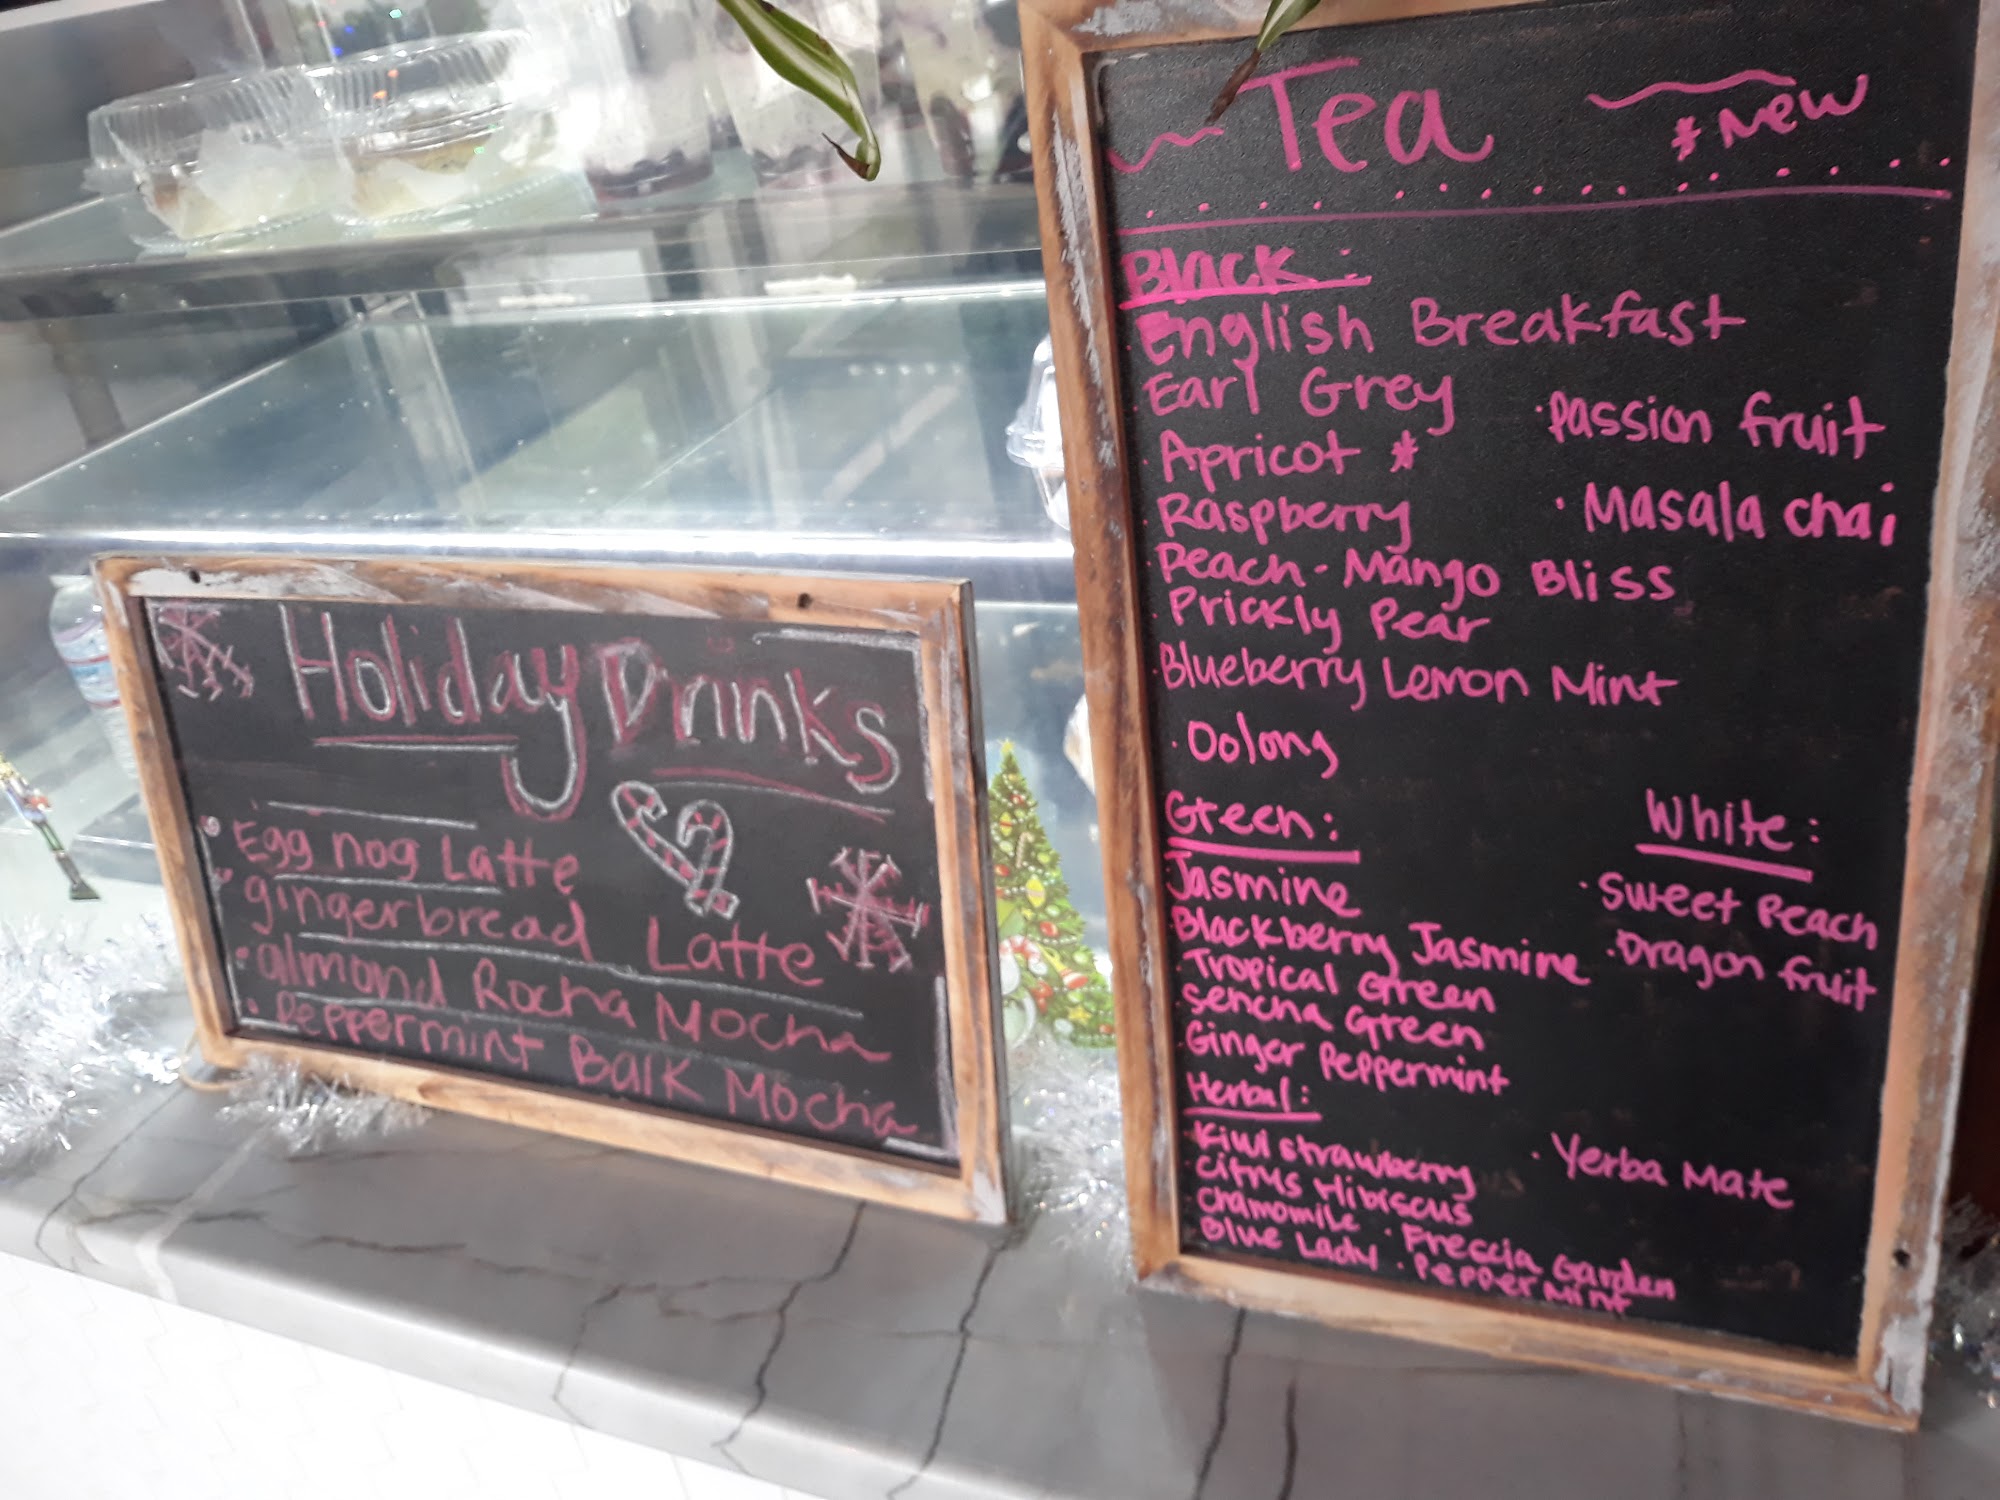 Holiday Drinks
Egg nog Latte
gingerbread Latte
almond Rocha Mocha
Peppermint Bark Mocha
Tea
* New
Black:
English Breakfast
Earl Grey
Apricot *
Raspberry
Peach-Mango Bliss
Prickly Pear
Blueberry Lemon Mint
Oolong
Passion fruit
Masala chai
Green:
Jasmine
Blackberry Jasmine
Tropical Green
Sencha Green
Ginger Peppermint
White:
Sweet Peach
Dragon fruit
Herbal:
Kiwi strawberry
Citrus Hibiscus
Chamomile
Blue Lady
Frescia Garden
Peppermint
Yerba Mate